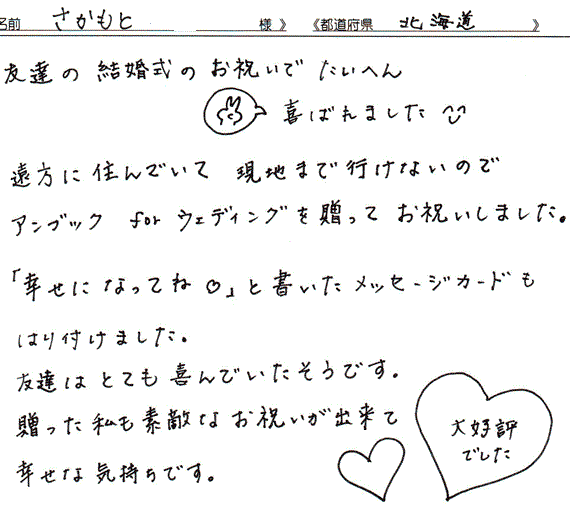 名前 さかもと 様 》 《都道府県 北海道 》
友達の 結婚式の お祝いで たいへん
喜ばれました
遠方に 住んでいて 現地まで 行けないので
アンブック for ウェディングを 贈って お祝いしました。
「幸せに なってね ♡」と 書いた メッセージカードも
はり付けました。
友達は とても 喜んでいたそうです。
贈った 私も 素敵な お祝いが 出来て
幸せな 気持ちです。
大好評
でした